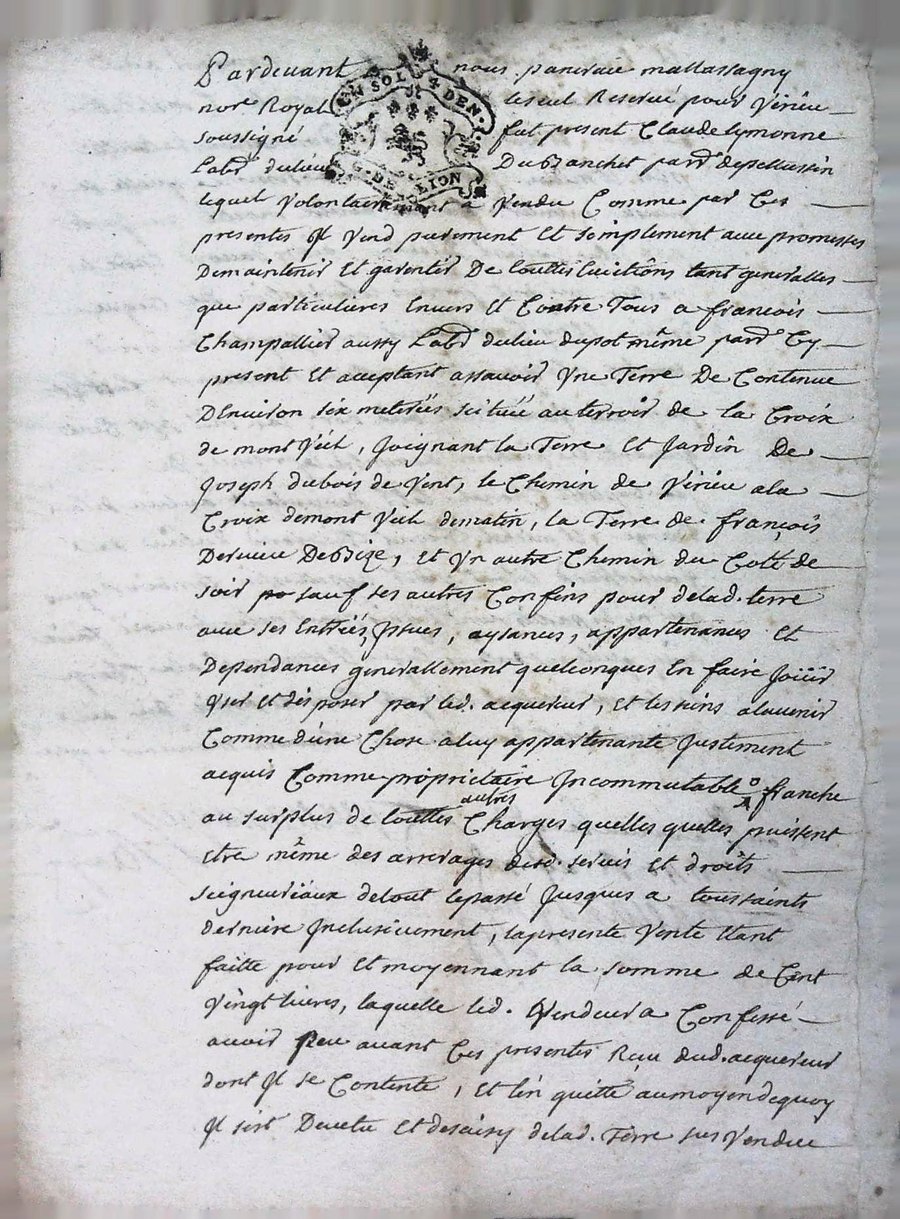 Pardevant nous pancrace mallassagny
nore Royal le seul Reservé pour Virieu
soussigné fut present Claude lymonne
Labr du lieu Du Banchet parr depellussin
lequel volontairement a vendu Comme par Ces
presentes Il vend purement Et simplement avec promesses
Demaintenir Et garentir De touttes Evictions tant generalles
que particulieres Envers Et Contre Tous a françois
Champallier aussy Labr du lieu dupot même parr Cy
present Et acceptant assavoir Une Terre De Contenue
D'Environ six meterées scituée au terroir de la Croix
de mont Viel, Joignant la Terre Et Jardin De
Joseph dubois de Vent, le Chemin de Virieu a la
Croix demont Viel dematin, la Terre de françois
Dervieu De Bize, Et Un autre Chemin du Cotté de
soir sauf ses autres Confins pour delad. terre
avec ses Entrées, Issues, aysances, appartenances Et
Dependances generallement quelconques En faire Joüir
User Et disposer par led. acquereur, Et les siens alavenir
Comme d'une Chose a luy appartenante Justement
acquis Comme proprietaire Incommutable franche
au surplus de touttes autres Charges quelles quelles puissent
Etre même des arrerages desd. servis Et droits
seigneuriaux detout lepassé Jusques a toussaints
derniere Inclusivement, lapresente Vente Etant
faitte pour Et moyennant la somme de Cent
Vingt livres, laquelle led. Vendeur a Confessé
avoir Peu avant Ces presentes Reçu dud. acquereur
dont Il se Contente, Et l'en quitte aumoyendequoy
Il s'est Devetu Et desaisy delad. Terre sus Vendue
EN SOL 4 DEN.
G. DE LION